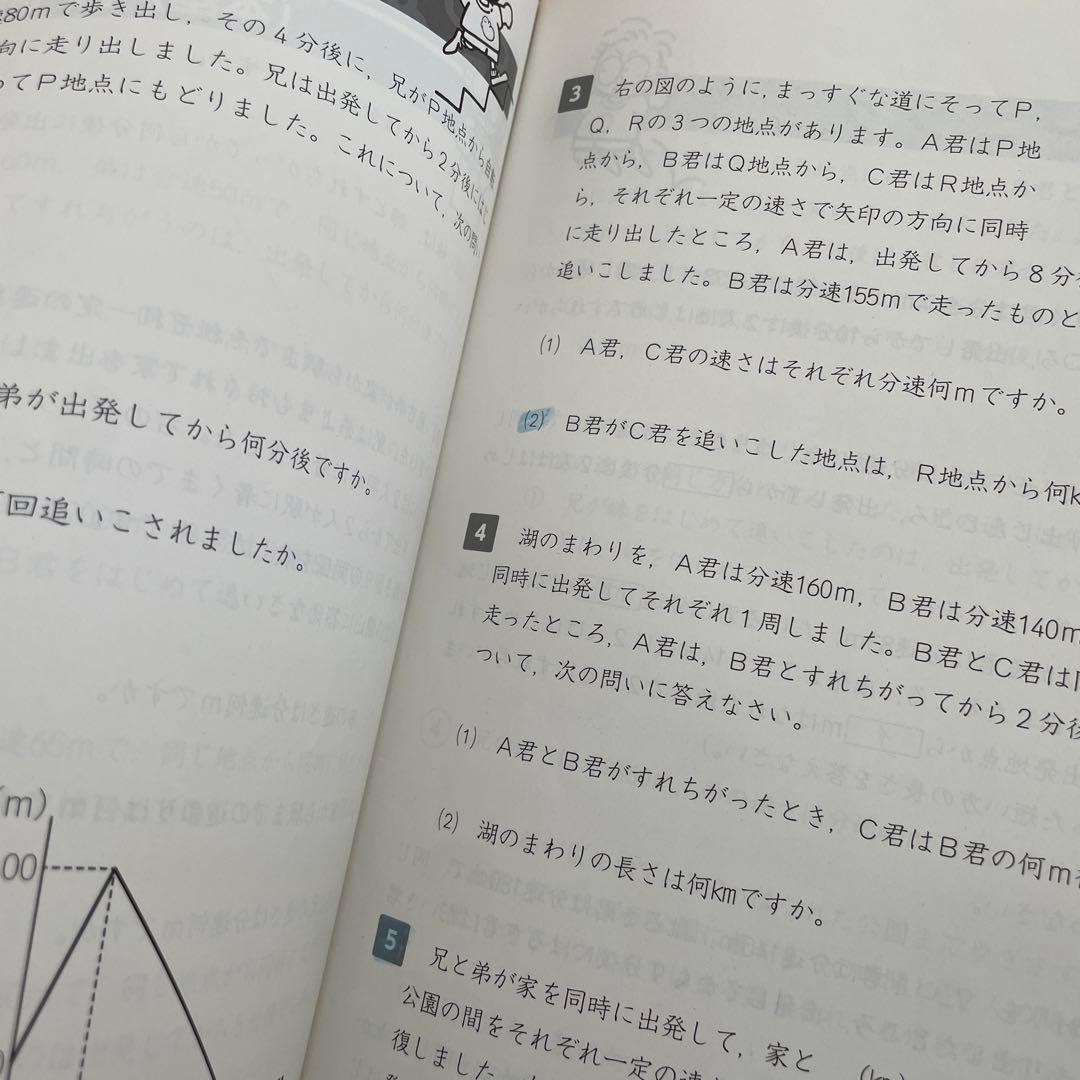 80mで歩き出し，その4分後に，兄がP地点から自転
向に走り出しました。兄は出発してから2分後にはじ
ってP地点にもどりました。これについて，次の問い
弟が出発してから何分後ですか。
回追いこされましたか。
(m)
00
3 右の図のように，まっすぐな道にそってP，
Q，Rの3つの地点があります。A君はP地
点から，B君はQ地点から，C君はR地点か
ら，それぞれ一定の速さで矢印の方向に同時
に走り出したところ，A君は，出発してから8分
追いこしました。B君は分速155mで走ったものと
(1) A君，C君の速さはそれぞれ分速何mですか。
(2) B君がC君を追いこした地点は，R地点から何k
4 湖のまわりを，A君は分速160m，B君は分速140m
同時に出発してそれぞれ1周しました。B君とC君は
走ったところ，A君は，B君とすれちがってから2分後
ついて，次の問いに答えなさい。
(1) A君とB君がすれちがったとき，C君はB君の何m
(2) 湖のまわりの長さは何kmですか。
5 兄と弟が家を同時に出発して，家と
公園の間をそれぞれ一定の速
復しました